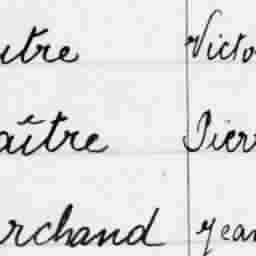 utre Victo
aître Pierr
rchand Jean